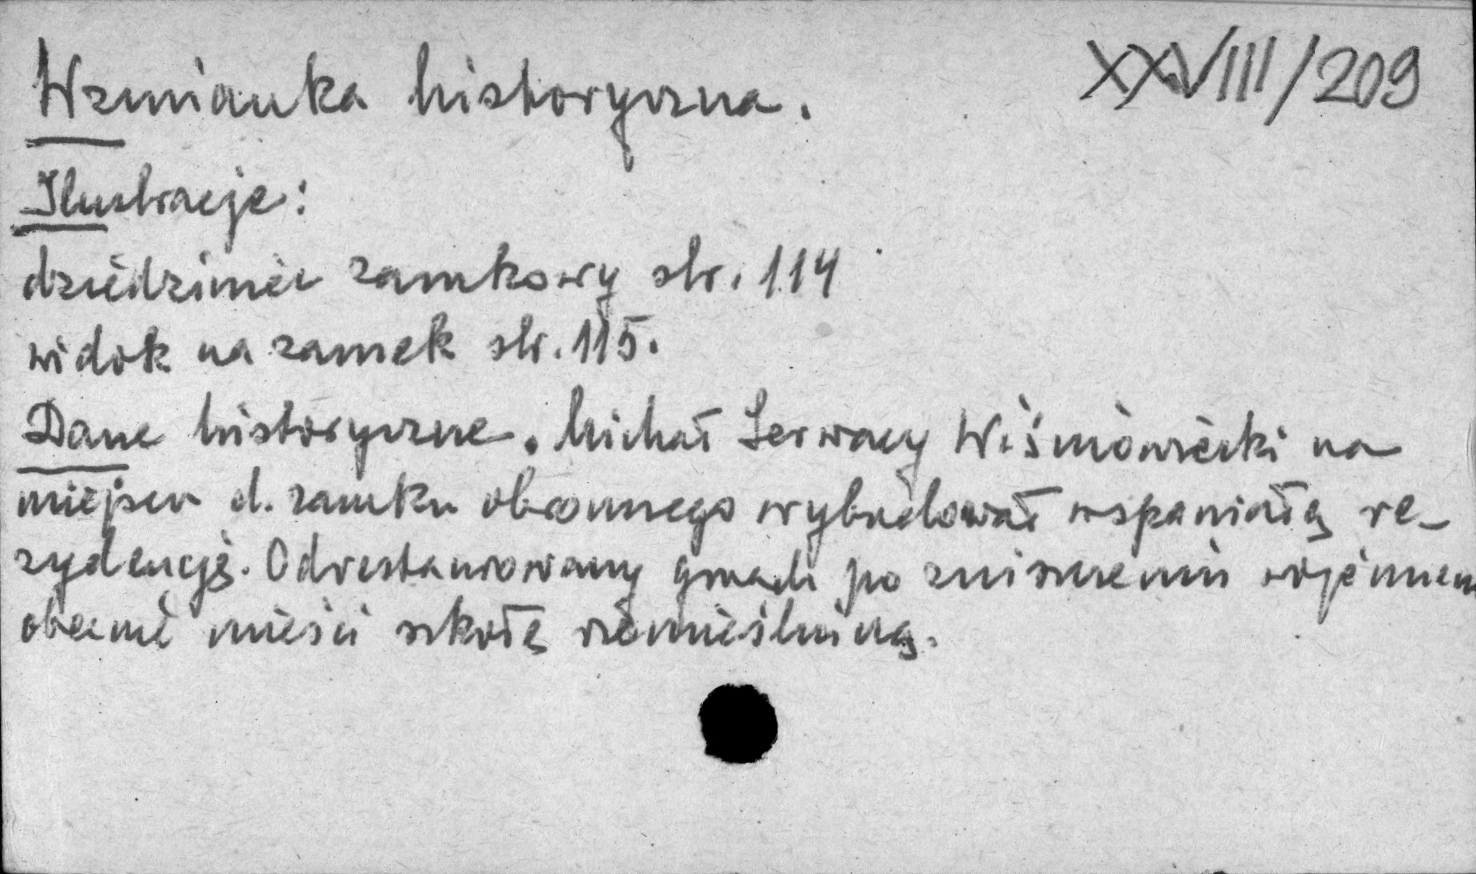 XXVIII/209
Wzmianka historyczna.
Ilustracje:
dziedziniec zamkowy str. 114
widok na zamek str. 115.
Dane historyczne. Michał Serwacy Wiśniowiecki na
miejscu d. zamku obronnego wybudował wspaniałą re-
zydencję. Odrestaurowany gmach po zniszczeniu wojennem
obecnie mieści szkołę rzemieślniczą.